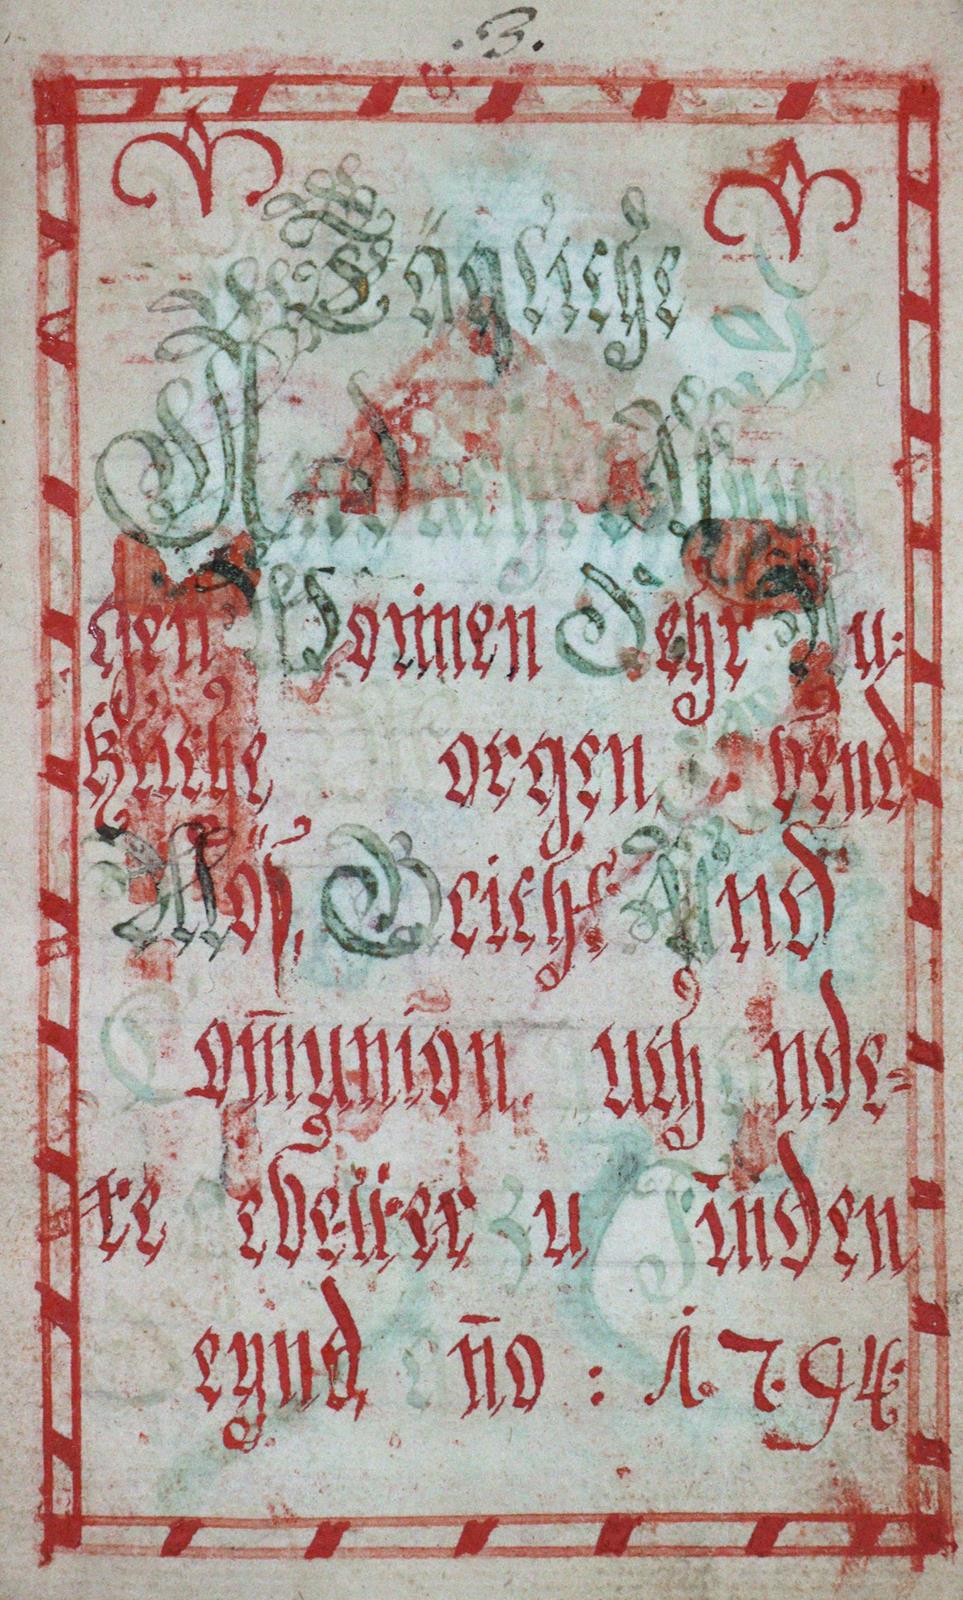 .3.
Tägliche
Andacht
gen Wonnen Sehr Nu:
tzliche orgen, bend
Möß, Beicht Und
om̄union. uch nde=
re ebetter zu Finden
eynd n̄o : 1.7.94.